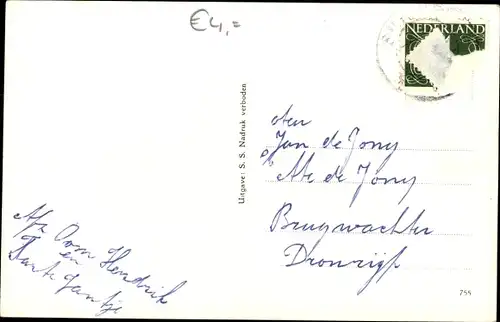 €4,=
NEDERLAND
Uitgave: S. S. Nadruk verboden
Jan de Jong
de Jong
Brugwachter
Dronrijp
Afz Oom Hendrik
en
Tante Jantje
755